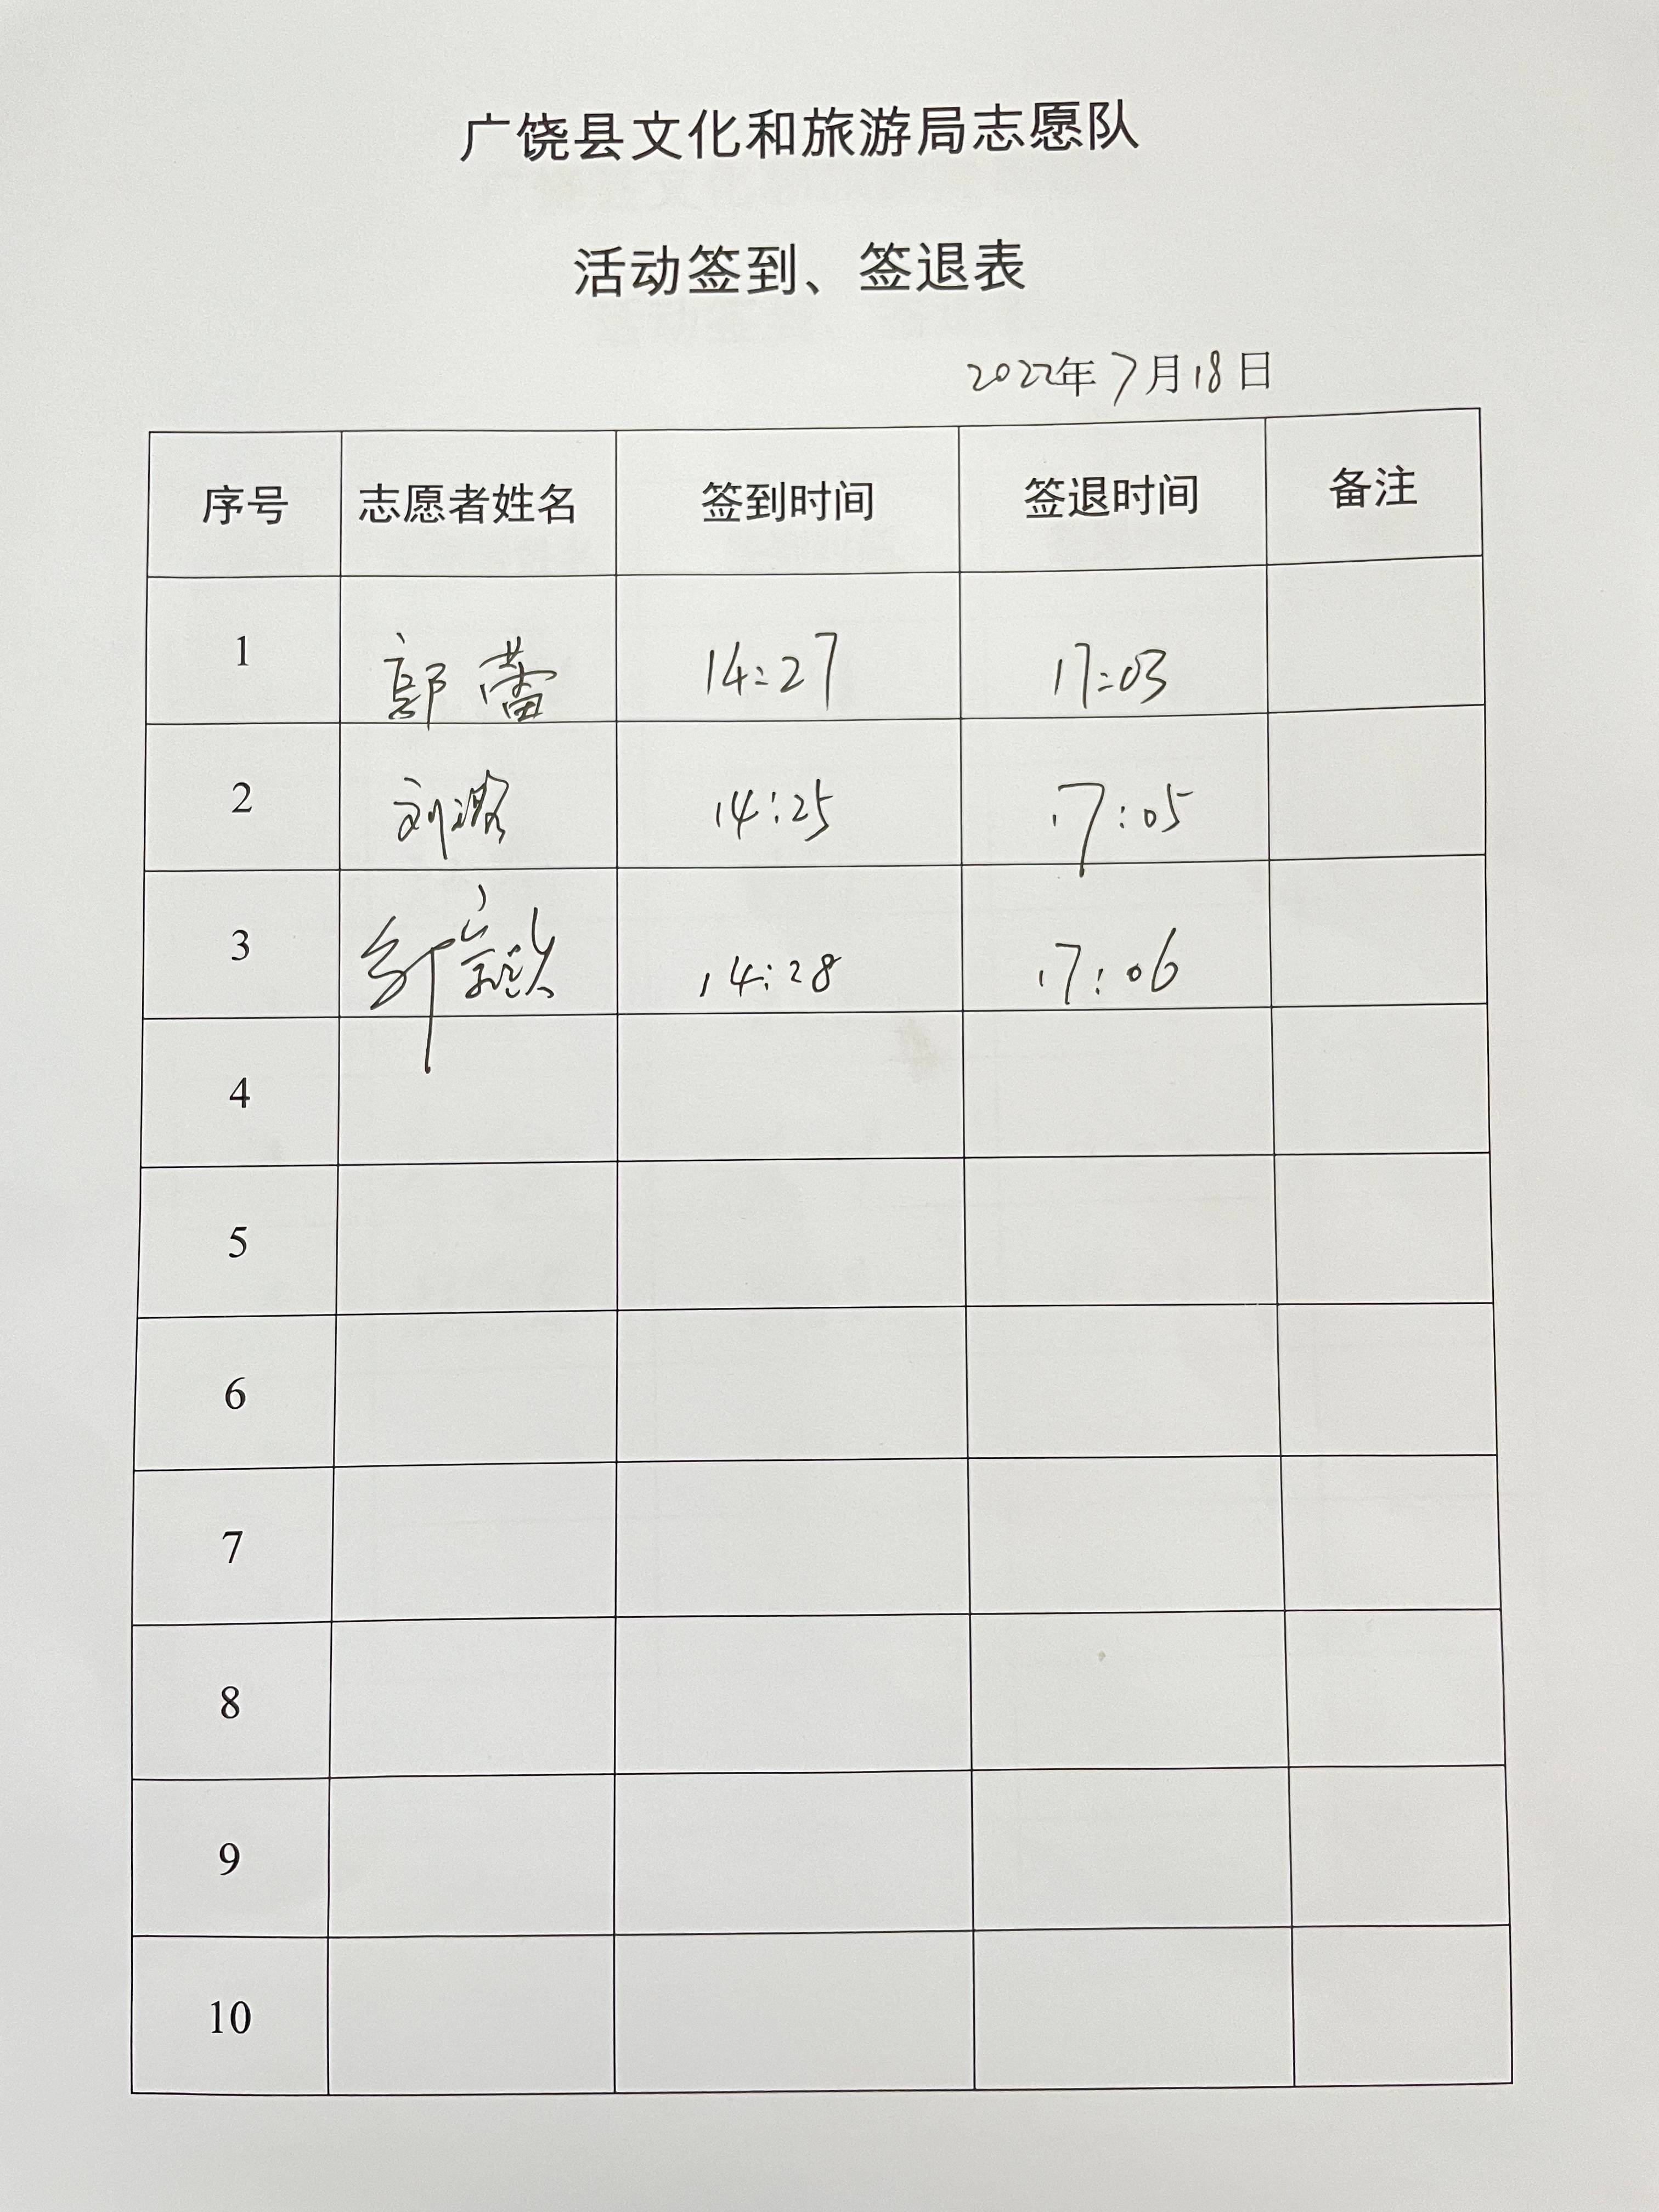 广饶县文化和旅游局志愿队
活动签到、签退表
2022年7月18日
序号 志愿者姓名 签到时间 签退时间 备注
1 郭蕾 14:27 17:03
2 刘潞 14:25 17:05
3 14:28 17:06
4
5
6
7
8
9
10